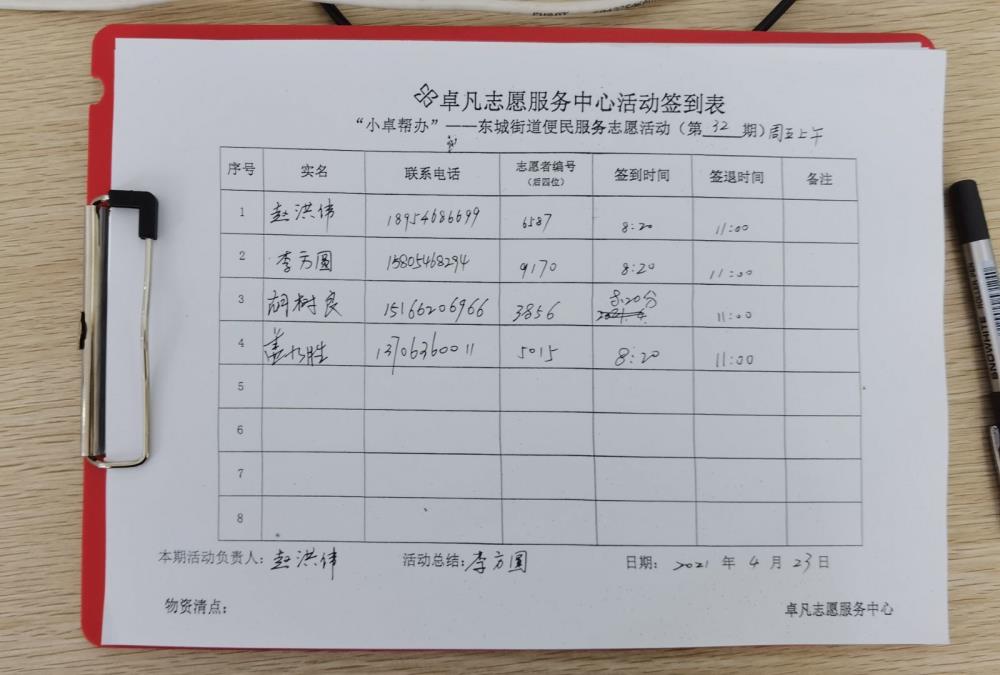 卓凡志愿服务中心活动签到表
“小卓帮办”——东城街道便民服务志愿活动（第 32 期）周五上午
序号 实名 联系电话 志愿者编号（后四位） 签到时间 签退时间 备注
1 赵洪伟 18954686699 6587 8:20 11:00
2 李方圆 15805468294 9170 8:20 11:00
3 胡树良 15166206966 3856 8:20分 11:00
4 胜 13706360011 5015 8:20 11:00
5
6
7
8
本期活动负责人：赵洪伟 活动总结：李方圆 日期： 2021 年 4 月 23 日
物资清点： 卓凡志愿服务中心